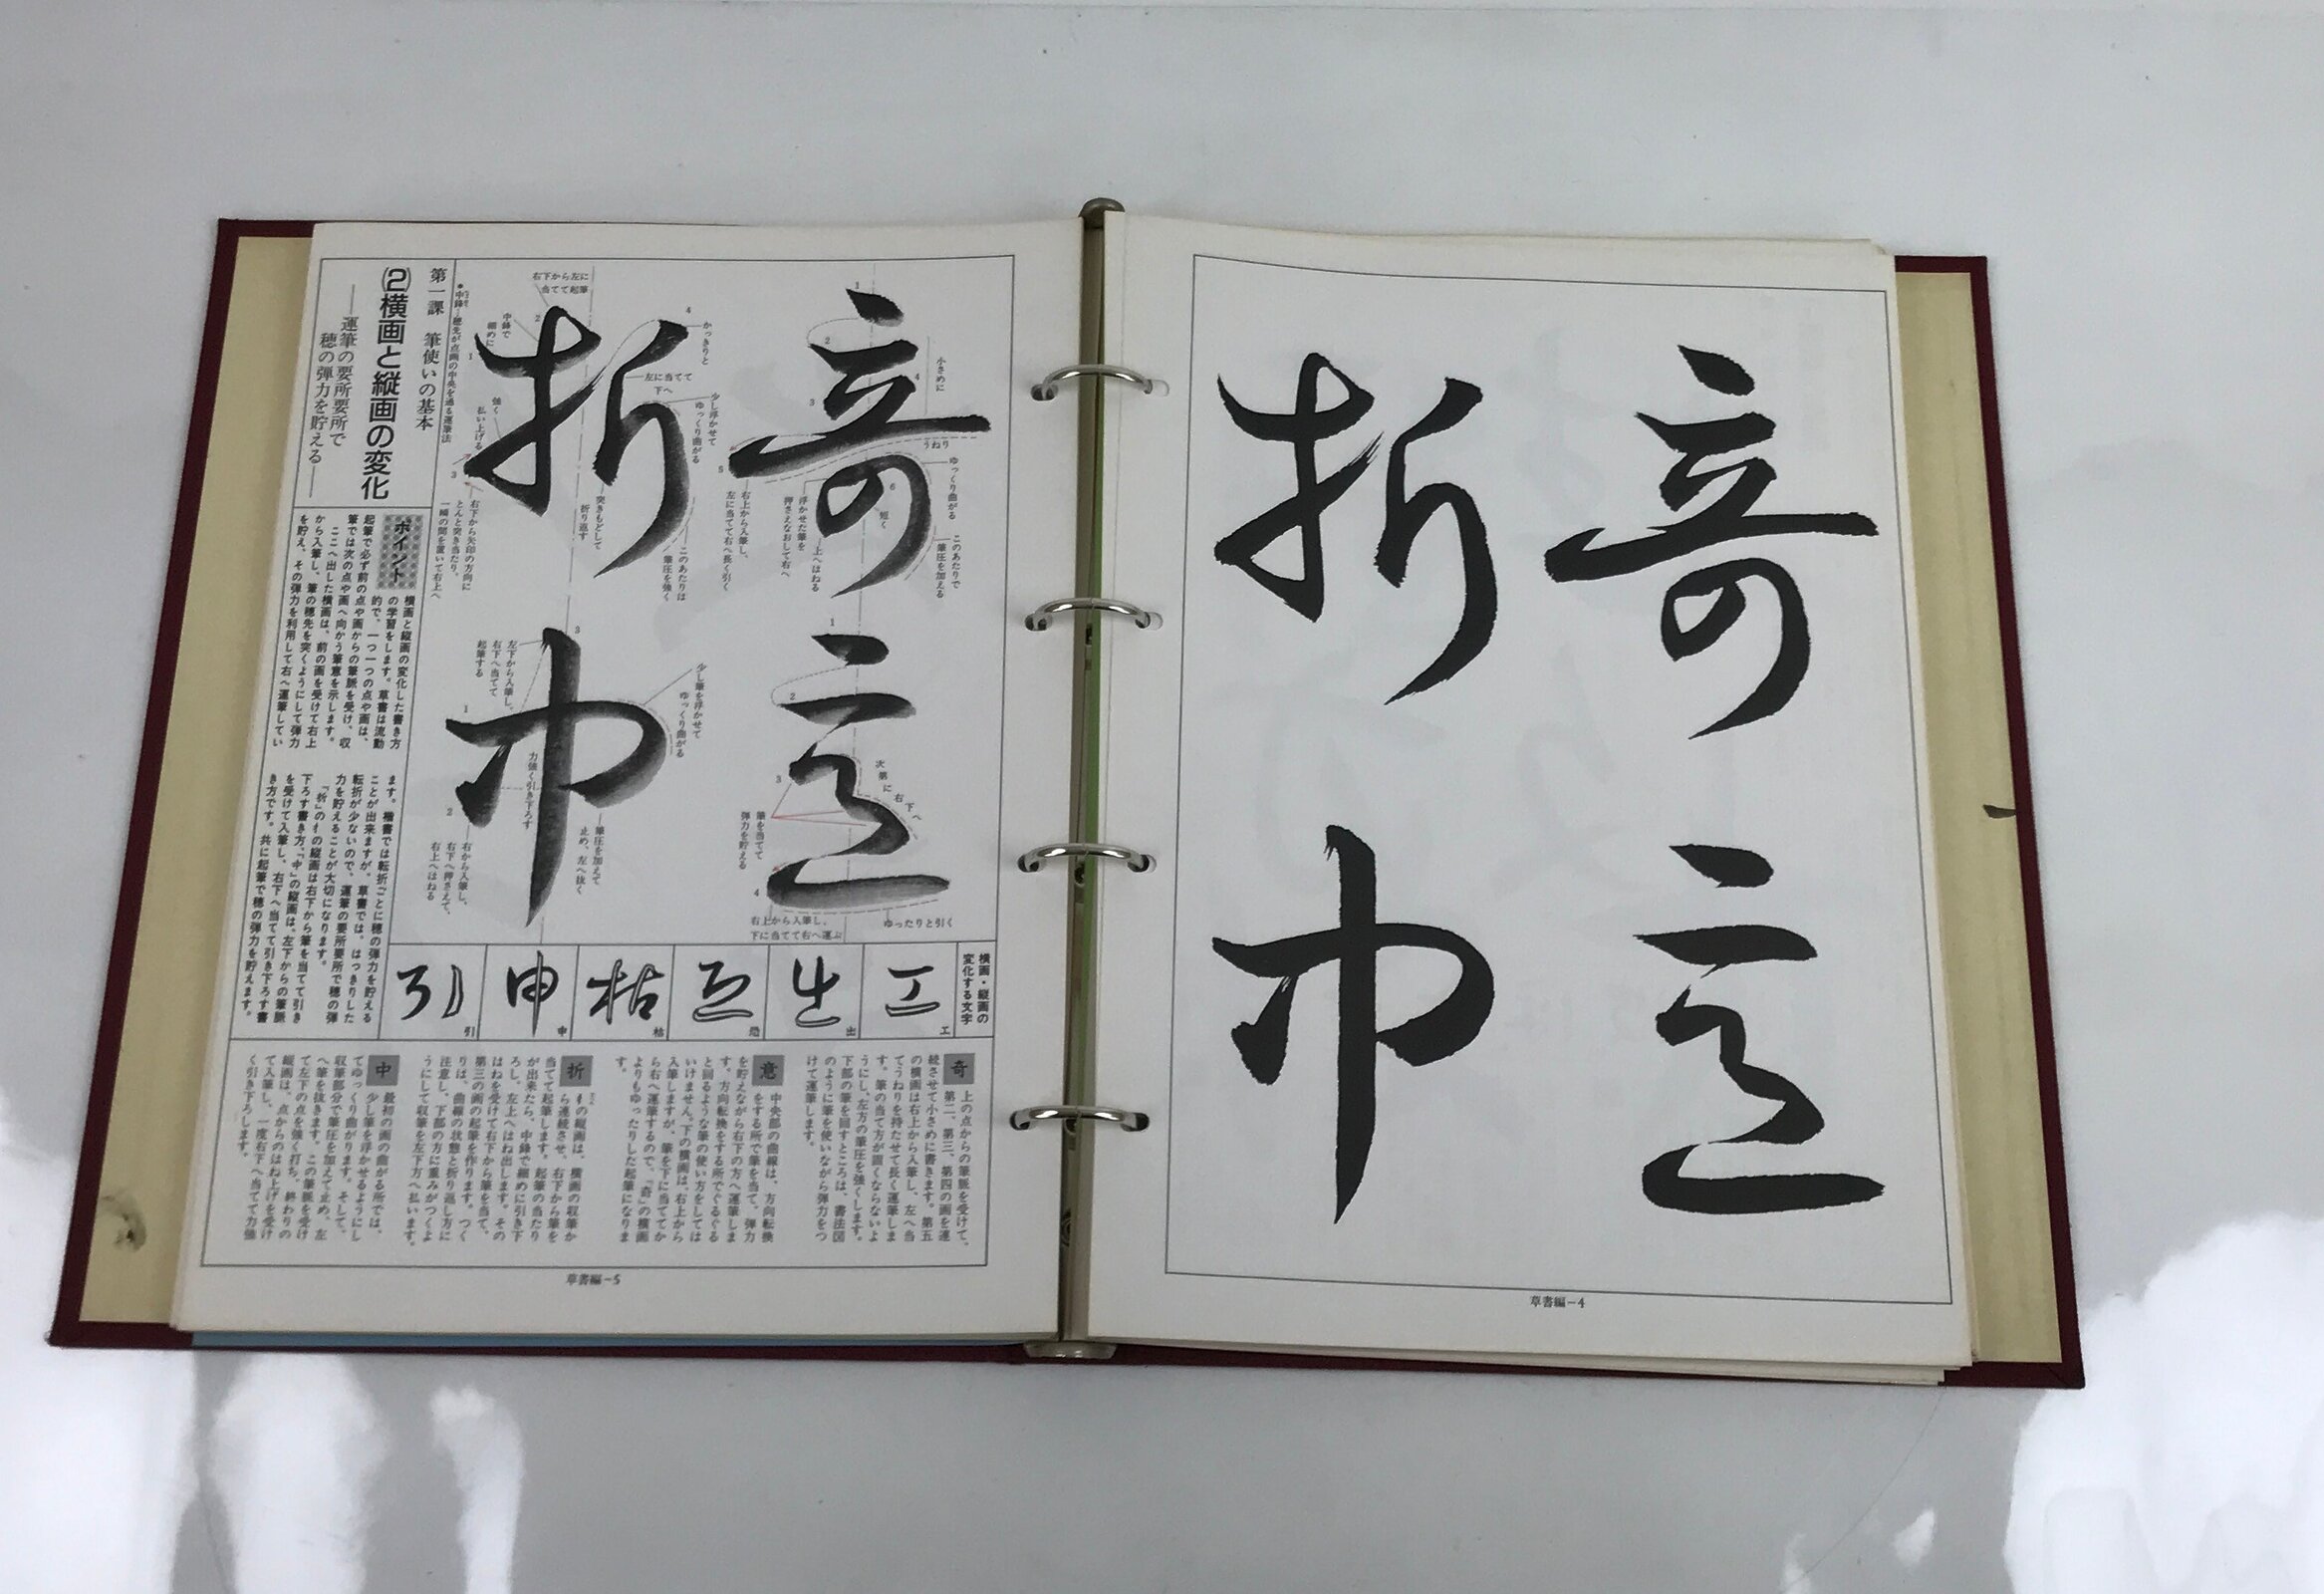 奇意
折中
草書編-4
第一課　筆使いの基本
(2)横画と縦画の変化
――運筆の要所要所で
穂の弾力を貯える――
●中鋒―穂先が点画の中央を通る運筆法
奇意
折中
小さめに
うねり
ゆっくり曲がる
このあたりで
筆圧を加える
短く
浮かせた筆を
押さえなおして右へ
上へはねる
右上から入筆し、
左に当てて右へ長く引く
次第に右下へ
筆を当てて
弾力を貯える
右上から入筆し、
下に当てて右へ運ぶ
ゆったりと引く
右下から左に
当てて起筆
中鋒で
細めに
かっきりと
左に当てて
下へ
少し浮かせて
ゆっくり曲がる
強く
払い上げる
突きもどして
折り返す
このあたりは
筆圧を強く
右下から矢印の方向に
とんと突き当たり、
一瞬の間を置いて右上へ
左下から入筆し、
右下へ当てて
起筆する
少し筆を浮かせて
ゆっくり曲がる
力強く引き下ろす
筆圧を加えて
止め、左へ抜く
右から入筆し、
右下へ押さえて、
右上へはねる
ポイント
横画と縦画の変化した書き方
の学習をします。草書は流動
的で、一つ一つの点や画は、
起筆で必ず前の点や画からの筆脈を受け、収
筆では次の点や画へ向かう筆意を示します。
ここへ出した横画は、前の画を受けて右上
から入筆し、筆の穂先を突くようにして弾力
を貯え、その弾力を利用して右へ運筆してい
ます。楷書では転折ごとに穂の弾力を貯える
ことが出来ますが、草書では、はっきりした
転折が少ないので、運筆の要所要所で穂の弾
力を貯えることが大切になります。
「折」の扌の縦画は右下から筆を当てて引き
下ろす書き方、「中」の縦画は、左下からの筆脈
を受けて入筆し、右下へ当てて引き下ろす書
き方です。共に起筆で穂の弾力を貯えます。
横画・縦画の
変化する文字
工
出
恐
枯
申
引
奇
上の点からの筆脈を受けて、
第二、第三、第四の画を連
続させて小さめに書きます。第五
の横画は右上から入筆し、左へ当
てうねりを持たせて長く運筆しま
す。筆の当て方が固くならないよ
うにし、左方の筆圧を強くします。
下部の筆を回すところは、書法図
のように筆を使いながら弾力をつ
けて運筆します。
意
中央部の曲線は、方向転換
をする所で筆を当て、弾力
を貯えながら右下の方へ運筆しま
す。方向転換をする所でぐるぐる
と回るような筆の使い方をしては
いけません。下の横画は、右上から
入筆しますが、筆を下に当ててか
ら右へ運筆するので、「奇」の横画
よりもゆったりした起筆になりま
す。
折
扌の縦画は、横画の収筆か
ら連続させ、右下から筆を
当てて起筆します。起筆の当たり
が出来たら、中鋒で細めに引き下
ろし、左上へはね出します。その
はねを受けて右下から筆を当て、
第三の画の起筆を作ります。つく
りは、曲線の状態と折り返し方に
注意し、下部の方に重みがつくよ
うにして収筆を左下方へ払います。
中
最初の画の曲がる所では、
少し筆を浮かせるようにし
てゆっくり曲がります。そして、
収筆部分で筆圧を加えて止め、左
へ筆を抜きます。この筆脈を受け
て左下の点を強く打ち、終わりの
縦画は、点からのはね上げを受け
て入筆し、一度右下へ当てて力強
く引き下ろします。
草書編-5